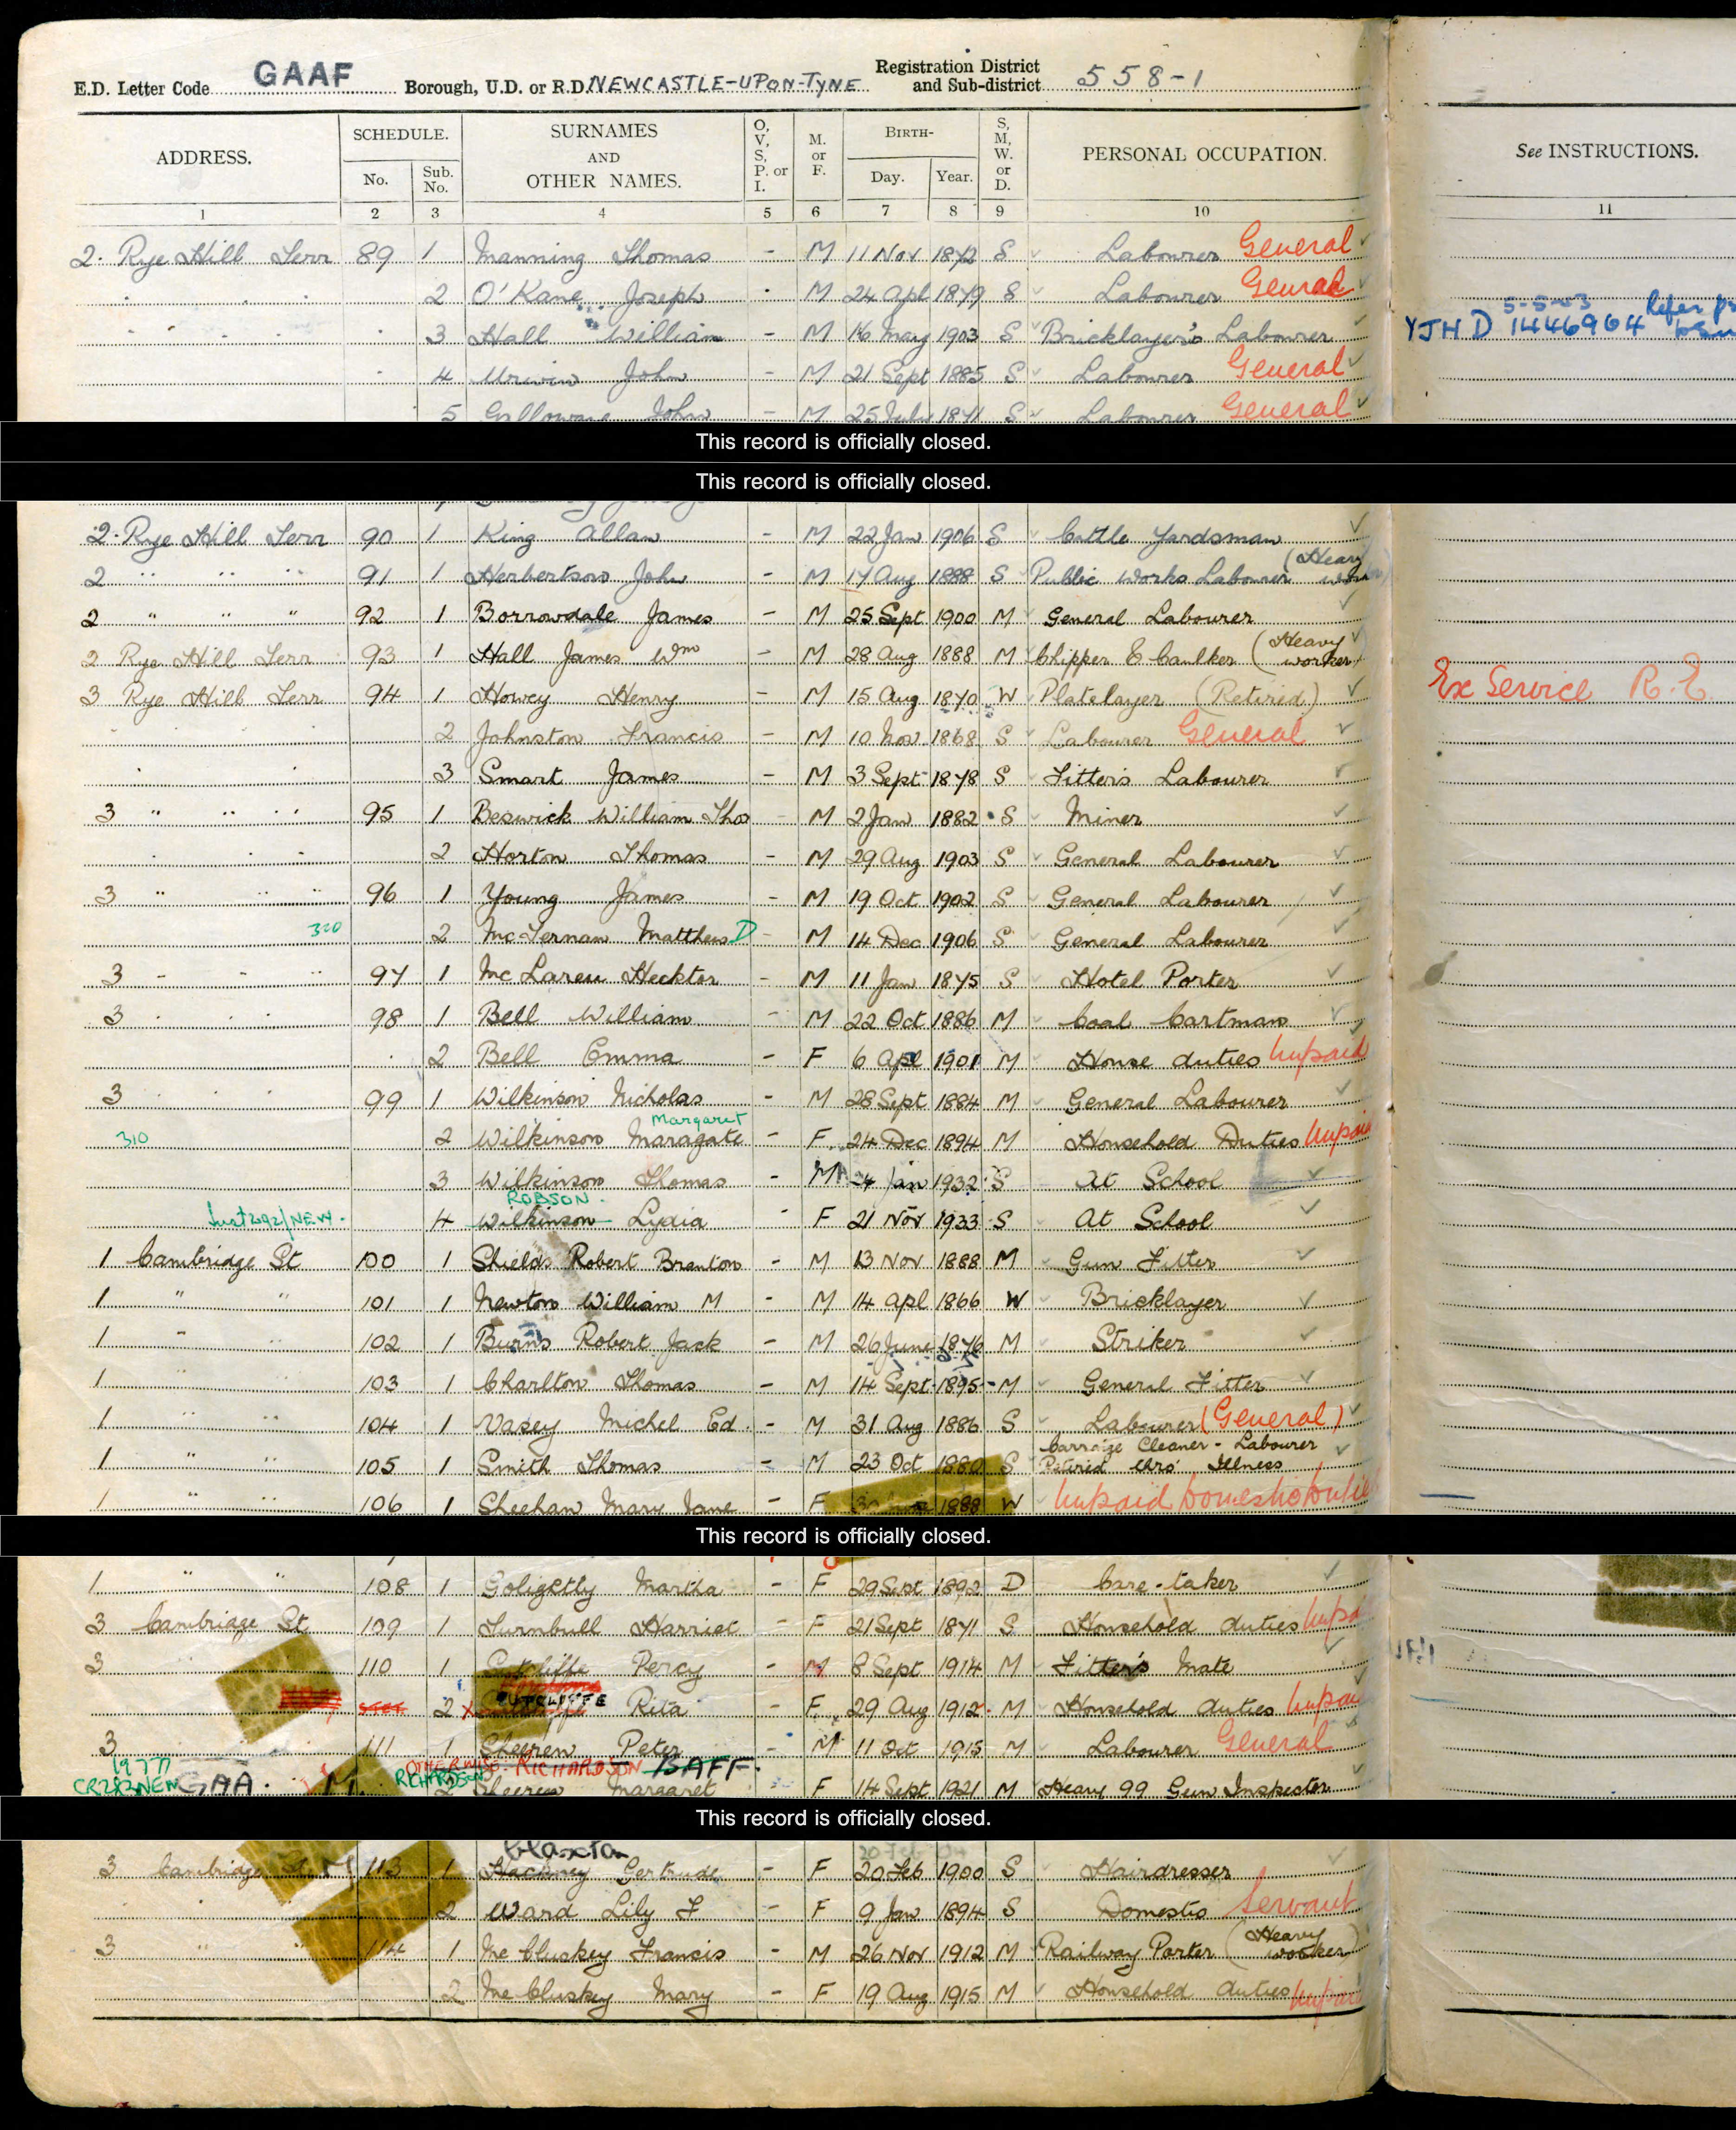 E.D. Letter Code GAAF Borough, U.D. or R.D. NEWCASTLE-UPON-TYNE Registration District and Sub-district 558-1
ADDRESS. SCHEDULE. No. Sub. No. SURNAMES AND OTHER NAMES. O, V, S, P. or I. M. or F. BIRTH- Day. Year. S, M, W. or D. PERSONAL OCCUPATION. See INSTRUCTIONS.
1 2 3 4 5 6 7 8 9 10 11
2. Rye Hill Terr 89 1 Manning Thomas - M 11 Nov 1872 S Labourer General
2 O'Kane Joseph - M 24 Apl 1879 S Labourer General
3 Hall William - M 16 May 1903 S Bricklayer's Labourer YJHD 1446964 5-5-53 Refer
4 Urwin John - M 21 Sept 1885 S Labourer General
5 Galloway John - M 25 July 1871 S Labourer General
This record is officially closed.
This record is officially closed.
2. Rye Hill Terr 90 1 King Allan - M 22 Jan 1906 S Cattle Yardsman
2 " " " 91 1 Herbertson John - M 17 Aug 1888 S Public Works Labourer (Heavy worker)
2 " " " 92 1 Borrowdale James - M 25 Sept 1900 M General Labourer
2 Rye Hill Terr 93 1 Hall James Wm - M 28 Aug 1888 M Chipper & Caulker (Heavy worker)
3 Rye Hill Terr 94 1 Howey Henry - M 15 Aug 1870 W Platelayer (Retired) Ex Service R.E.
2 Johnston Francis - M 10 Nov 1868 S Labourer General
3 Smart James - M 3 Sept 1878 S Fitter's Labourer
3 " " " 95 1 Beswick William Thos - M 2 Jan 1882 S Miner
2 Horton Thomas - M 29 Aug 1903 S General Labourer
3 " " " 96 1 Young James - M 19 Oct 1902 S General Labourer
320 2 McTernan Matthew D - M 14 Dec 1906 S General Labourer
3 - " " 97 1 McLaren Hecktor - M 11 Jan 1875 S Hotel Porter
3 98 1 Bell William - M 22 Oct 1886 M Coal Cartman
2 Bell Emma - F 6 Apl 1901 M House duties Unpaid
3 99 1 Wilkinson Nicholas - M 28 Sept 1884 M General Labourer
Margaret
310 2 Wilkinson Maragate - F 24 Dec 1894 M Household Duties Unpaid
3 Wilkinson Thomas - M 4 Jan 1932 S At School
ROBSON.
292/NEW. 4 Wilkinson Lydia - F 21 Nov 1933 S At School
1 Cambridge St 100 1 Shields Robert Brenton - M 13 Nov 1888 M Gun Fitter
1 " " 101 1 Newton William M - M 14 Apl 1866 W Bricklayer
1 " " 102 1 Burns Robert Jack - M 26 June 1876 M Striker
1 " " 103 1 Charlton Thomas - M 14 Sept 1895 - M General Fitter
1 " " 104 1 Vasey Michel Ed. - M 31 Aug 1886 S Labourer (General)
1 " " 105 1 Smith Thomas - M 23 Oct 1880 S Carraige Cleaner - Labourer Retired thro' Illness
1 " " 106 1 Sheehan Mary Jane - F 1888 W Unpaid Domestic Duties
This record is officially closed.
1 " " 108 1 Golightly Martha - F 29 Sept 1892 D Care-taker
3 Cambridge St 109 1 Turnbull Harriet - F 21 Sept 1871 S Household duties Unpd
3 110 1 Sutcliffe Percy - M 8 Sept 1914 M Fitter's Mate
2 X SUTCLIFFE Rita - F 29 Aug 1912. M Household duties Unpaid
3 111 1 Sheeren Peter - M 11 Oct 1915 M Labourer General
19777 OTHERWISE RICHARDSON BAFF.
CR282NEW GAA. M. RICHARDSON 2 Sheeren Margaret F 14 Sept 1921 M Heavy 99 Gun Inspector
This record is officially closed.
Claxton
3 Cambridge St. M 113 1 Hackney Gertrude - F 20 Feb 1900 S Hairdresser
2 Ward Lily F - F 9 Jan 1894 S Domestic Servant
3 " " 114 1 McCluskey Francis - M 26 Nov 1912 M Railway Porter (Heavy worker)
2 McCluskey Mary - F 19 Aug 1915 M Household duties Unpaid